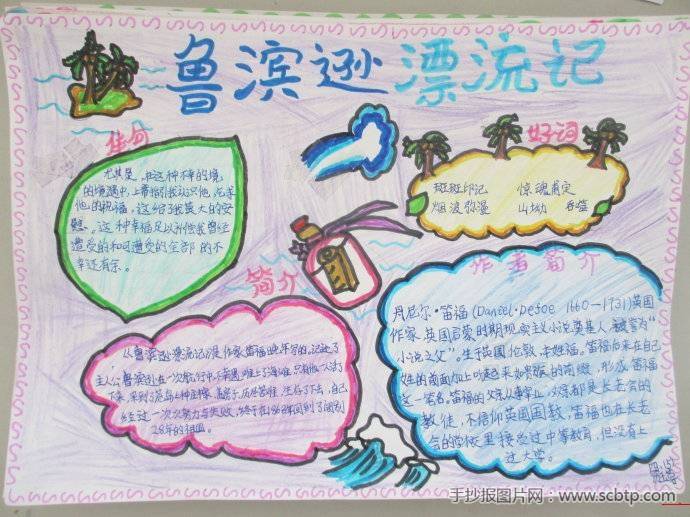 鲁滨逊漂流记
佳句
尤其是,在这种不幸的境
的境遇中,上帝指引我认识他,乞求
他的祝福,这给了我莫大的安
慰。这种幸福足以补偿我曾经
遭受的和可遭受的全部的不
幸还有余。
好词
斑斑印记 惊魂甫定
烟波弥漫 山坳
简介
《鲁滨逊漂流记》是作家笛福晚年写的,记述了
主人公鲁滨逊在一次航行中不幸遇难上海难,只有他一人活了
下来,来到了荒岛上种庄稼,历尽苦难,生存了下去,自己
经过一次次努力与失败,终于在
28年的祖国。
作者简介
丹尼尔·笛福(Daniel·Defoe 1660—1731)英国
作家,英国启蒙时期现实主义小说奠基人,被誉为“
小说之父”。生于英国伦敦,本姓福。笛福后来在自己
姓的前面加上 的前缀,形成笛福
这一笔名,笛福的父亲从事宰业,父亲都是长老会的
教徒,不信仰英国国教,笛福也在长老
会的学校里接受过中等教育,但没有上
过大学。
手抄报图片网:www.scbtp.com